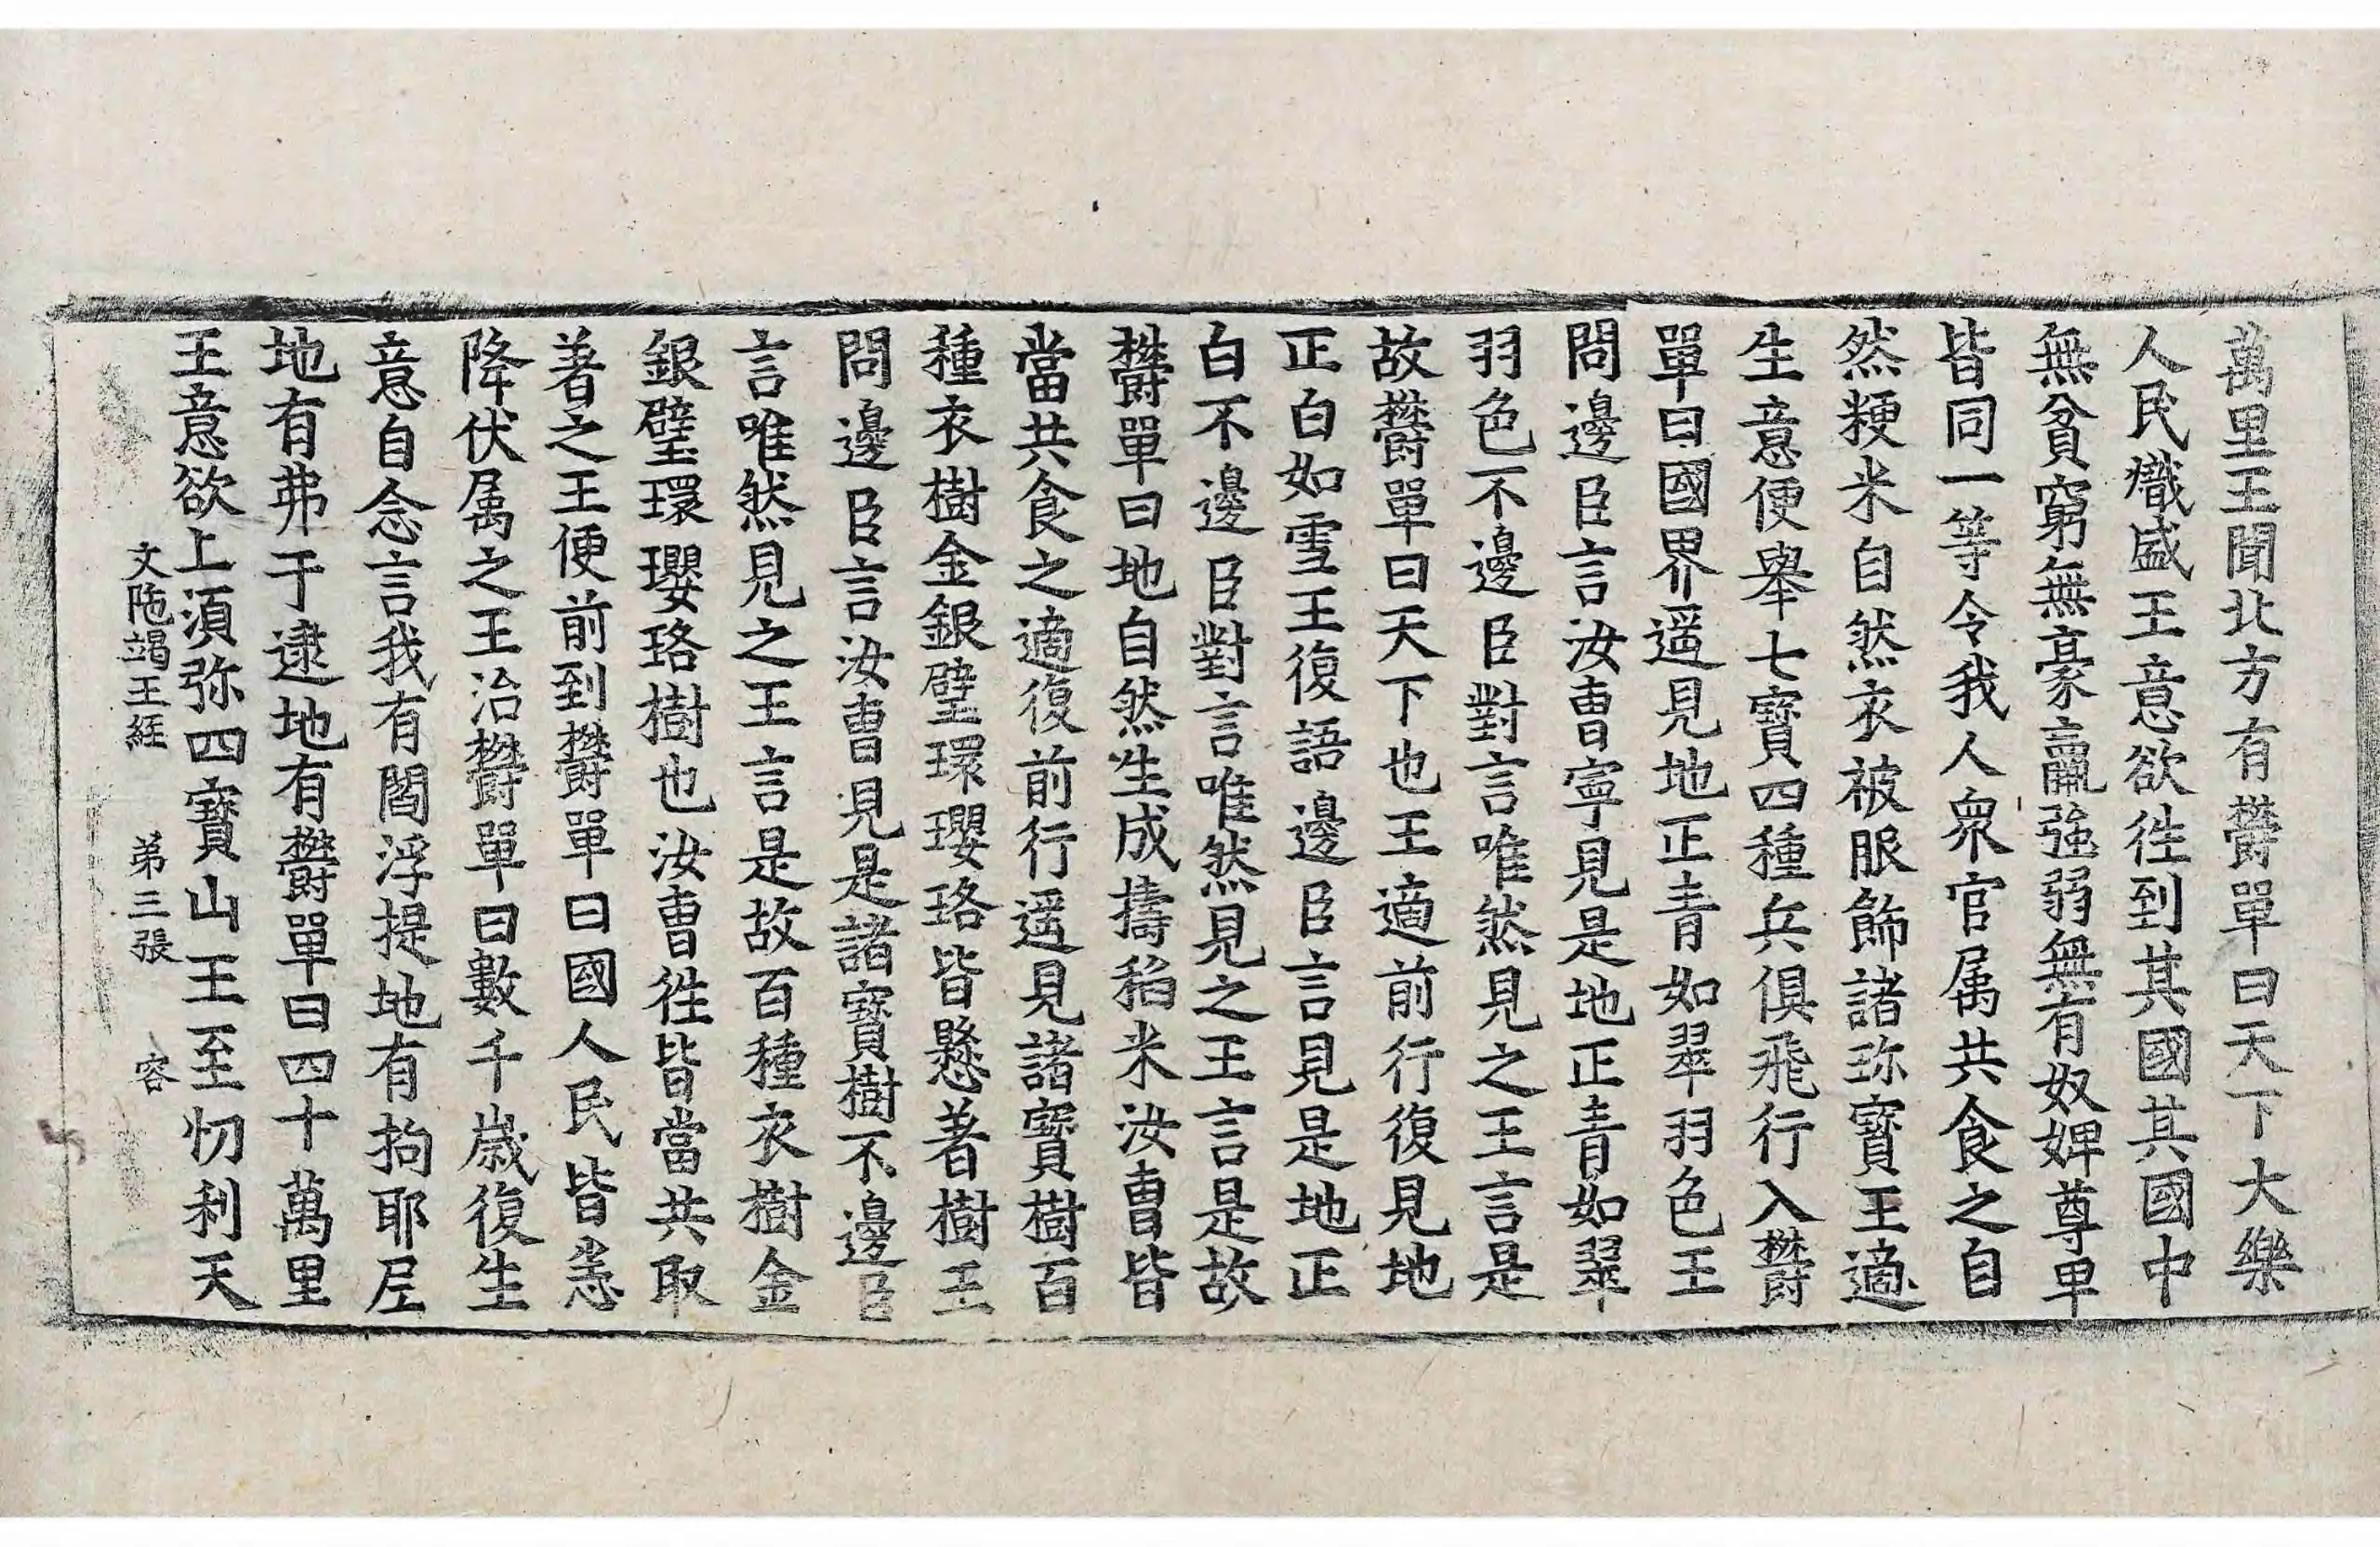 萬里王聞北方有欝單曰天下大樂
人民熾盛王意欲徃到其國其國中
無貧窮無豪羸強弱無有奴婢尊卑
皆同一等令我人衆官属共食之自
然粳米自然衣被服飾諸珎寶王適
生意便舉七寶四種兵俱飛行入欝
單曰國界遥見地正青如翠羽色王
問邊臣言汝曹寧見是地正青如翠
羽色不邊臣對言唯然見之王言是
故欝單曰天下也王適前行復見地
正白如雪王復語邊臣言見是地正
白不邊臣對言唯然見之王言是故
欝單曰地自然生成擣稻米汝曹皆
當共食之適復前行遥見諸寶樹百
種衣樹金銀璧環瓔珞皆懸著樹王
問邊臣言汝曹見是諸寶樹不邊臣
言唯然見之王言是故百種衣樹金
銀璧環瓔珞樹也汝曹徃皆當共取
著之王便前到欝單曰國人民皆恙
降伏属之王治欝單曰數千歳復生
意自念言我有閻浮提地有拘耶尼
地有弗于逮地有欝單曰四十萬里
王意欲上湏弥四寶山王至忉利天
文陁竭王経 弟三張 容